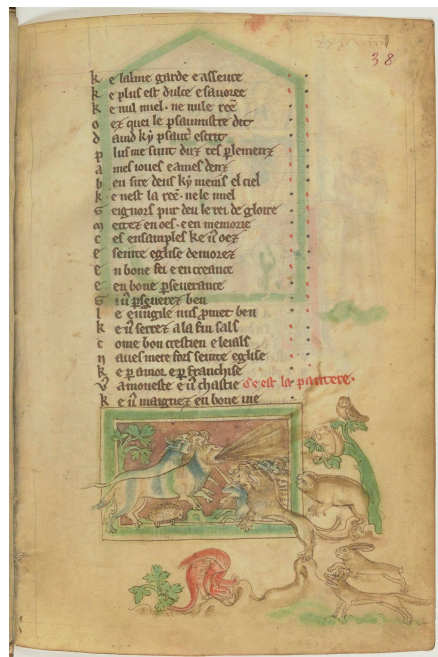 38
k e salme garde e asseure
k e plus est dulce e savoree
k e nul miel . ne nule ree
o ez quei le psaumistre dit
d auid ky psaut escrit
p lus me sunt duz tes plemenz
a mes ioues e a mes denz
b eu sire deus ky meins el ciel
k e nest la ree . ne le miel
s eignors pur deu le rei de gloire
m ettez en oes . e en memorie
c es ensamples ke u oez
e seinte eglise demorez
e n bone fei e en creance
e en bone pseuerance
s i u pseuerez ben
l e euungile uus pmet ben
k e u serrez a la fin sals
c ome bon crestien e leials
n aues mere fors seinte eglise
k e p amor e p franchise
v amoueste e u chastie Ce est la pantere .
k e u maignez en bone uie